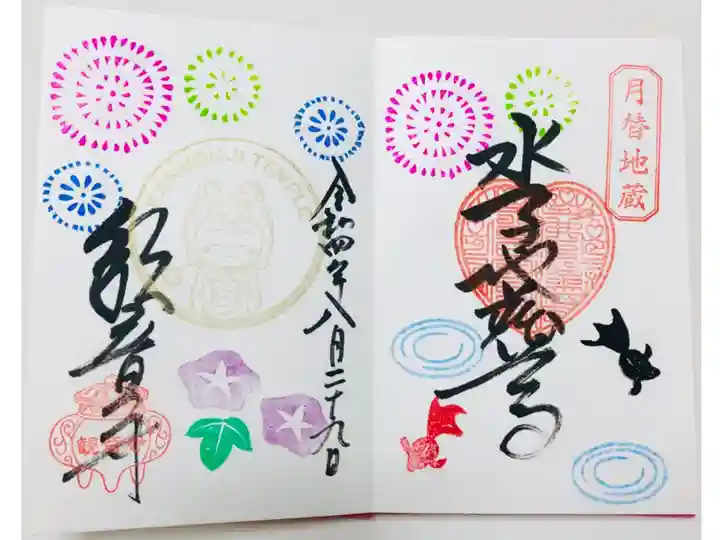 月替地蔵
水子地蔵尊
令和四年八月二十九日
KANNONJI TEMPLE
観音寺
観音寺